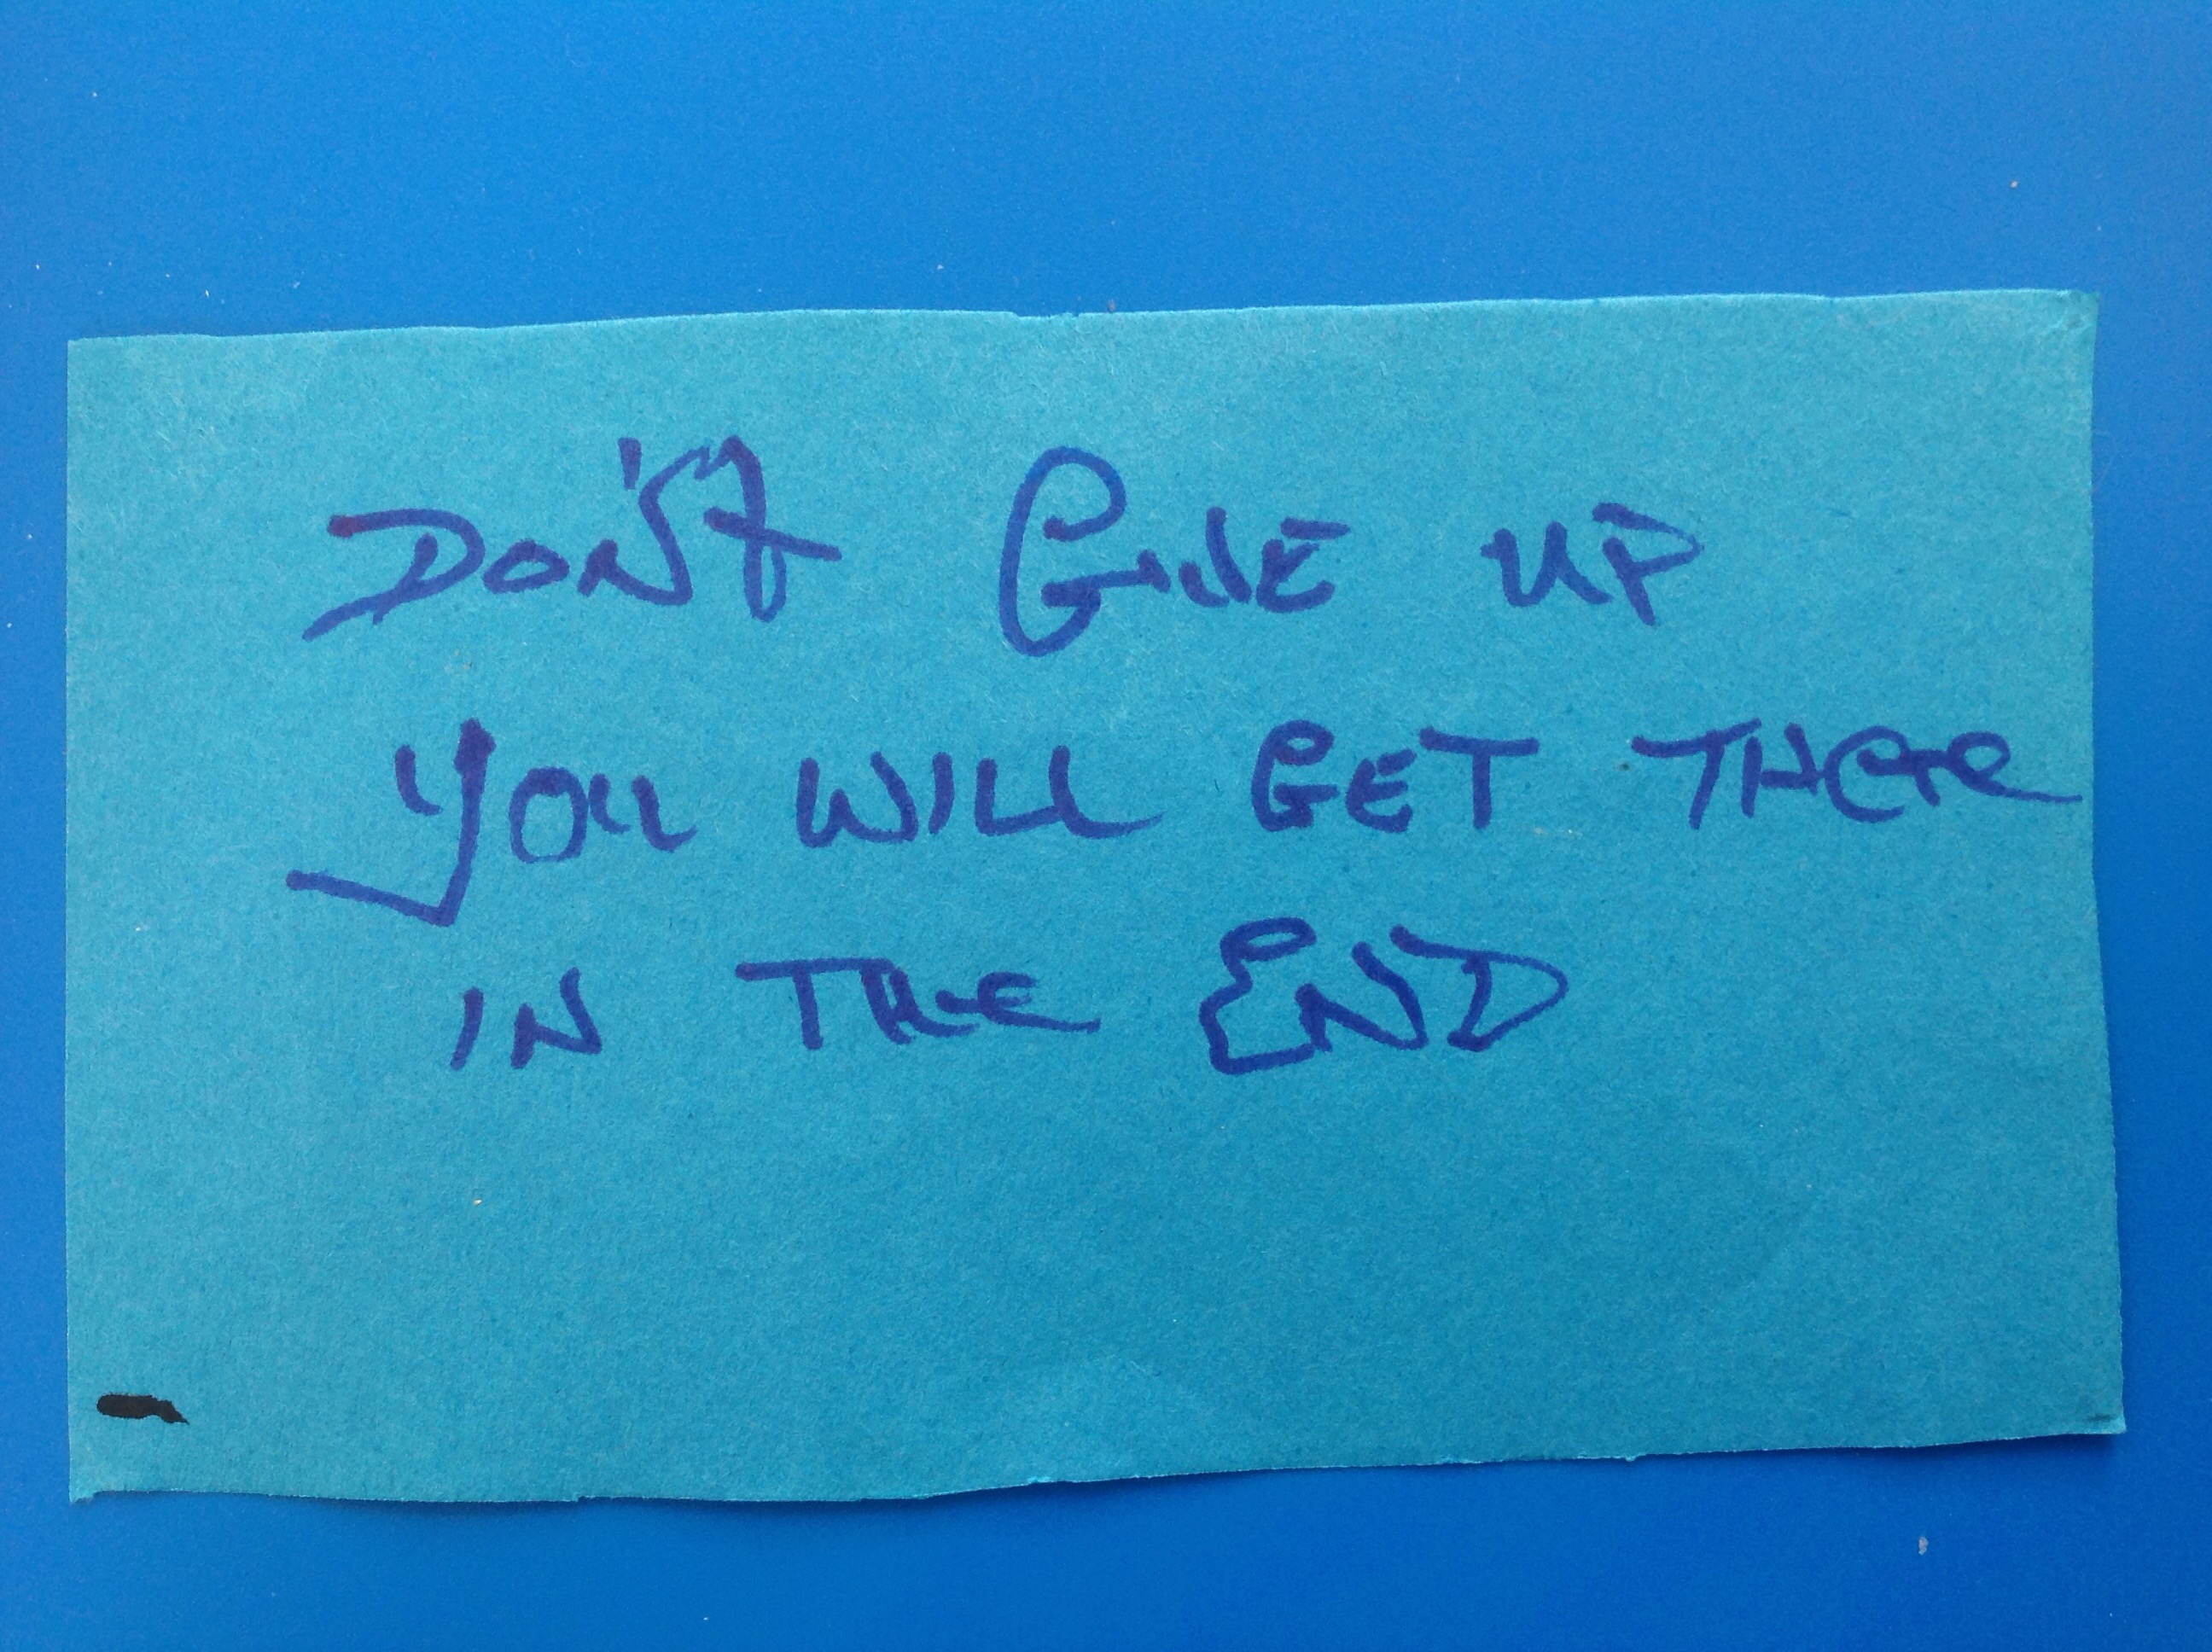 DON'T GIVE UP
YOU WILL GET THERE
IN THE END